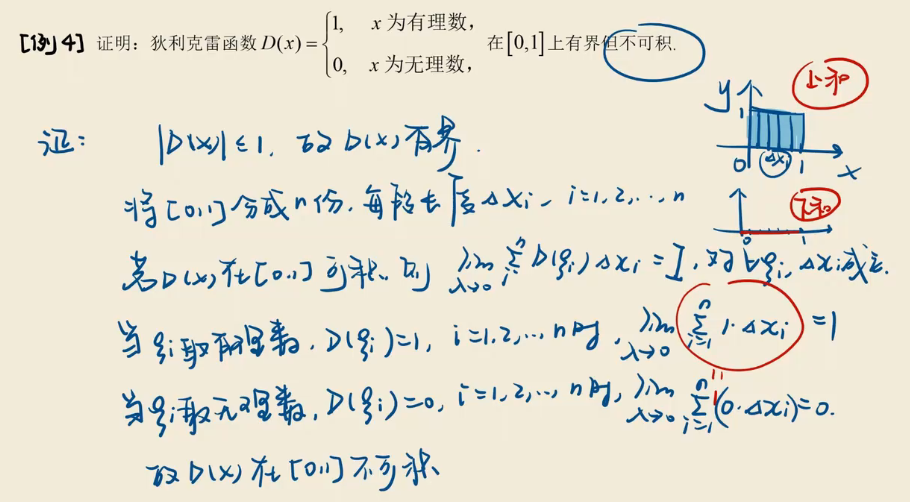 [例4] 证明：狄利克雷函数 D(x)={1, x 为有理数， 0, x 为无理数， 在[0,1]上有界但不可积.
上和
y
1
0 Δxi 1 x
下和
0 1
证： |D(x)|≤1, 故 D(x) 有界.
将[0,1]分成n份, 每段长度Δxi, i=1,2,…,n
若D(x)在[0,1]可积, 则 lim λ→0 Σ i n D(ξi)Δxi=I, 对∀ξi, Δxi成立.
当ξi取有理数, D(ξi)=1, i=1,2,…,n时, lim λ→0 Σ i=1 n 1·Δxi =1
当ξi取无理数, D(ξi)=0, i=1,2,…,n时, lim λ→0 Σ i=1 n (0·Δxi)=0.
故D(x)在[0,1]不可积